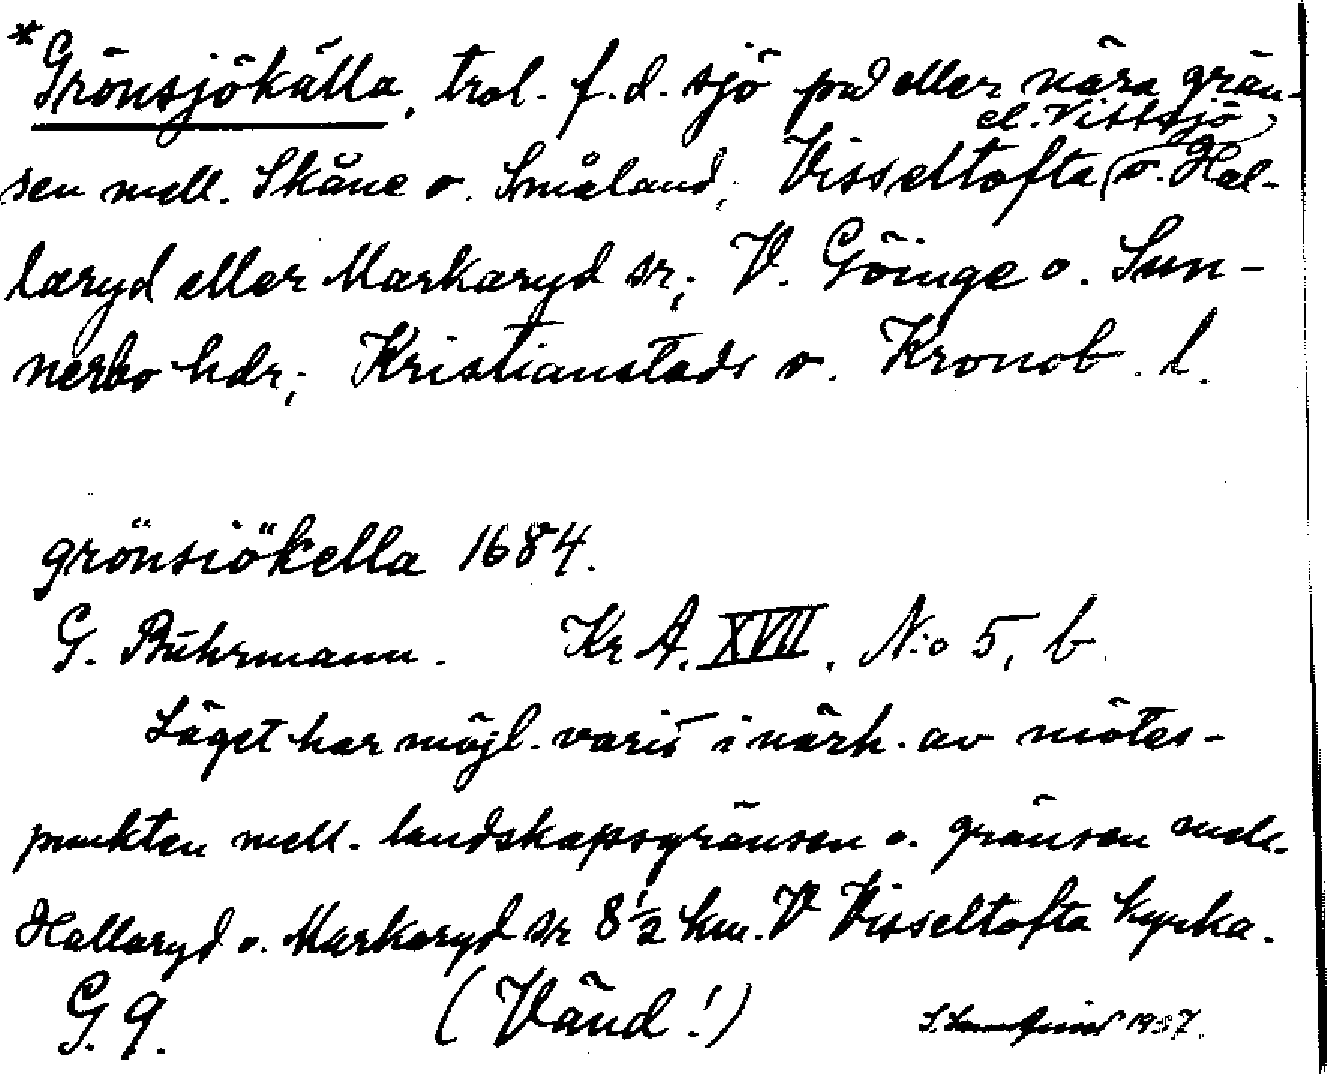 *Grönsjökälla, trol. f.d. sjö på eller nära grän-
el. Vittsjö
sen mell. Skåne o. Småland; Visseltofta o. Hal-
laryd eller Markaryd sr; V. Göinge o. Sun-
nerbo hdr; Kristianstads o. Kronob. l.
grönsiökella 1684.
G. Buhrmann. Kr A. XVII, N:o 5, b.
Läget har möjl. varit i närh. av mötes-
punkten mell. landskapsgränsen o. gränsen mell.
Hallaryd o. Markaryd sr 8 1/2 km. V Visseltofta kyrka.
G. 9. (Vänd!) 1937.